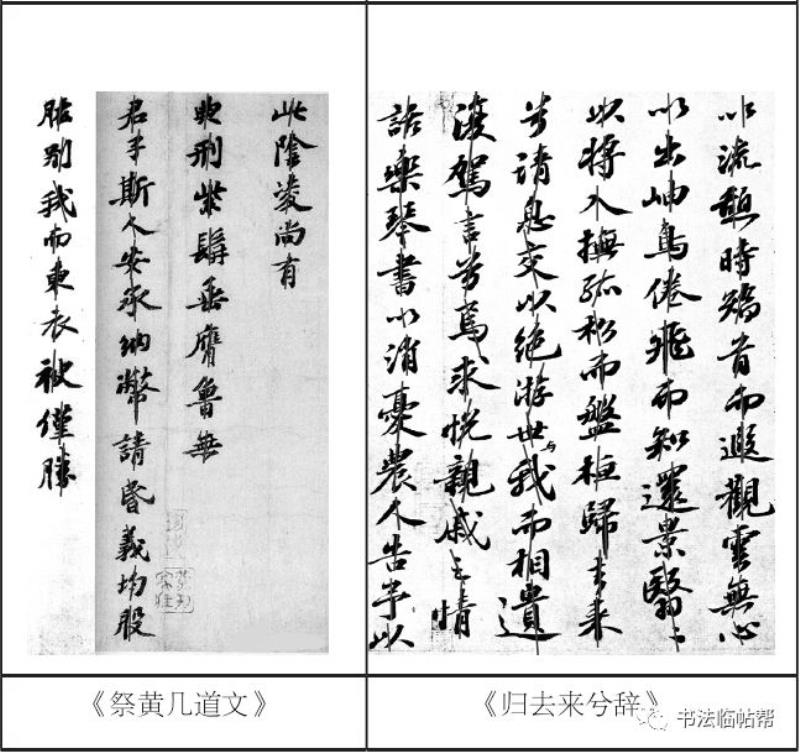 此陰凌尚有
典刑紫髯垂膺魯無
君子斯人安承納幣請昏義均股
肱别我而東衣袂僅勝
以流憩時矯首而遐觀雲無心
以出岫鳥倦飛而知還景翳〻
以將入撫孤松而盤桓歸去来
兮請息交以絕游世与我而相遺
復駕言兮焉求悅親戚之情
話樂琴書以消憂農人告余以
《祭黄几道文》
《归去来兮辞》
书法临帖帮